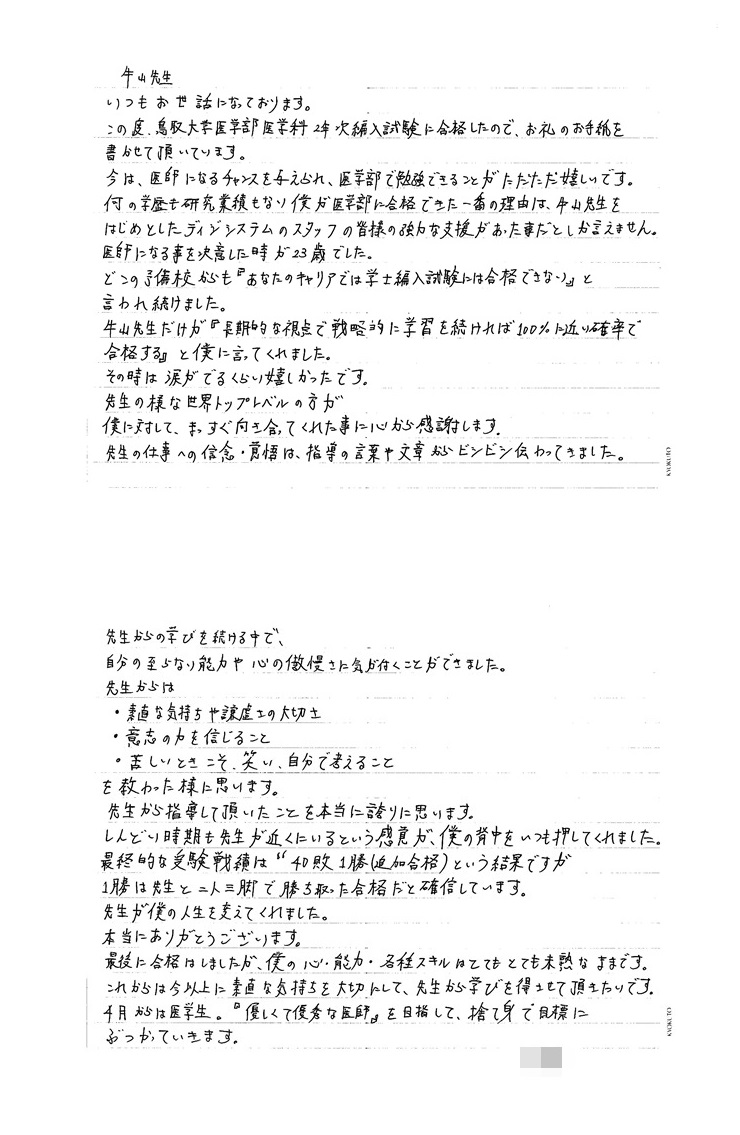 牛山先生
いつもお世話になっております。
この度、鳥取大学医学部医学科2年次編入試験に合格したので、お礼のお手紙を
書かせて頂いています。
今は、医師になるチャンスを与えられ、医学部で勉強できることがただただ嬉しいです。
何の学歴も研究業績もない僕が医学部に合格できた一番の理由は、牛山先生を
はじめとしたディジシステムのスタッフの皆様の強力な支援があった事だとしか言えません。
医師になる事を決意した時が23歳でした。
どこの予備校からも『あなたのキャリアでは学士編入試験には合格できない』と
言われ続けました。
牛山先生だけが『長期的な視点で戦略的に学習を続ければ100%に近い確率で
合格する』と僕に言ってくれました。
その時は涙がでるくらい嬉しかったです。
先生の様な世界トップレベルの方が
僕に対して、まっすぐ向き合ってくれた事に心から感謝します。
先生の仕事への信念・覚悟は、指導の言葉や文章からビンビン伝わってきました。
KYOKUTO
先生からの学びを続ける中で、
自分の至らない能力や心の傲慢さに気が付くことができました。
先生からは
・素直な気持ちや謙虚さの大切さ
・意志の力を信じること
・苦しいときこそ、笑い、自分で考えること
を教わった様に思います。
先生から指導して頂いたことを本当に誇りに思います。
しんどい時期も先生が近くにいるという感覚が、僕の背中をいつも押してくれました。
最終的な受験戦績は“40敗1勝(追加合格)という結果ですが
1勝は先生と二人三脚で勝ち取った合格だと確信しています。
先生が僕の人生を変えてくれました。
本当にありがとうございます。
最後に合格はしましたが、僕の心・能力・各種スキルはとてもとても未熟なままです。
これからは今以上に素直な気持ちを大切にして、先生から学びを得させて頂きたいです。
4月からは医学生。『優しくて優秀な医師』を目指して、捨て身で目標に
ぶつかっていきます。
KYOKUTO